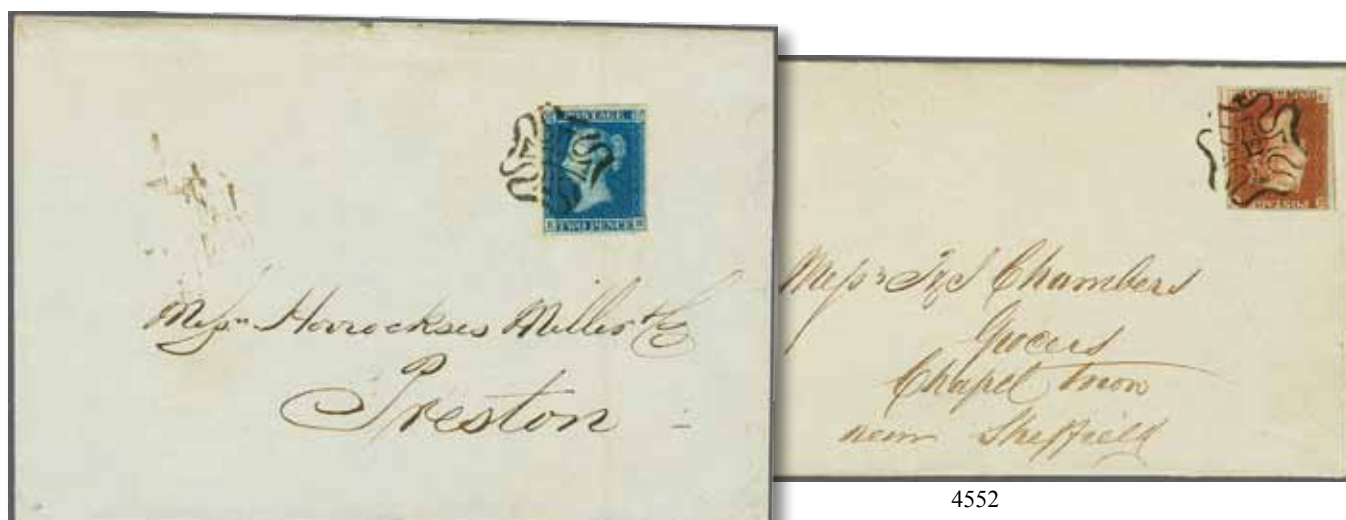 POSTAGE
TWO PENCE
Messrs Horrockses Miller & Co
Preston
Messrs
Chambers
Grocers
Chapel Town
near Sheffield
4552